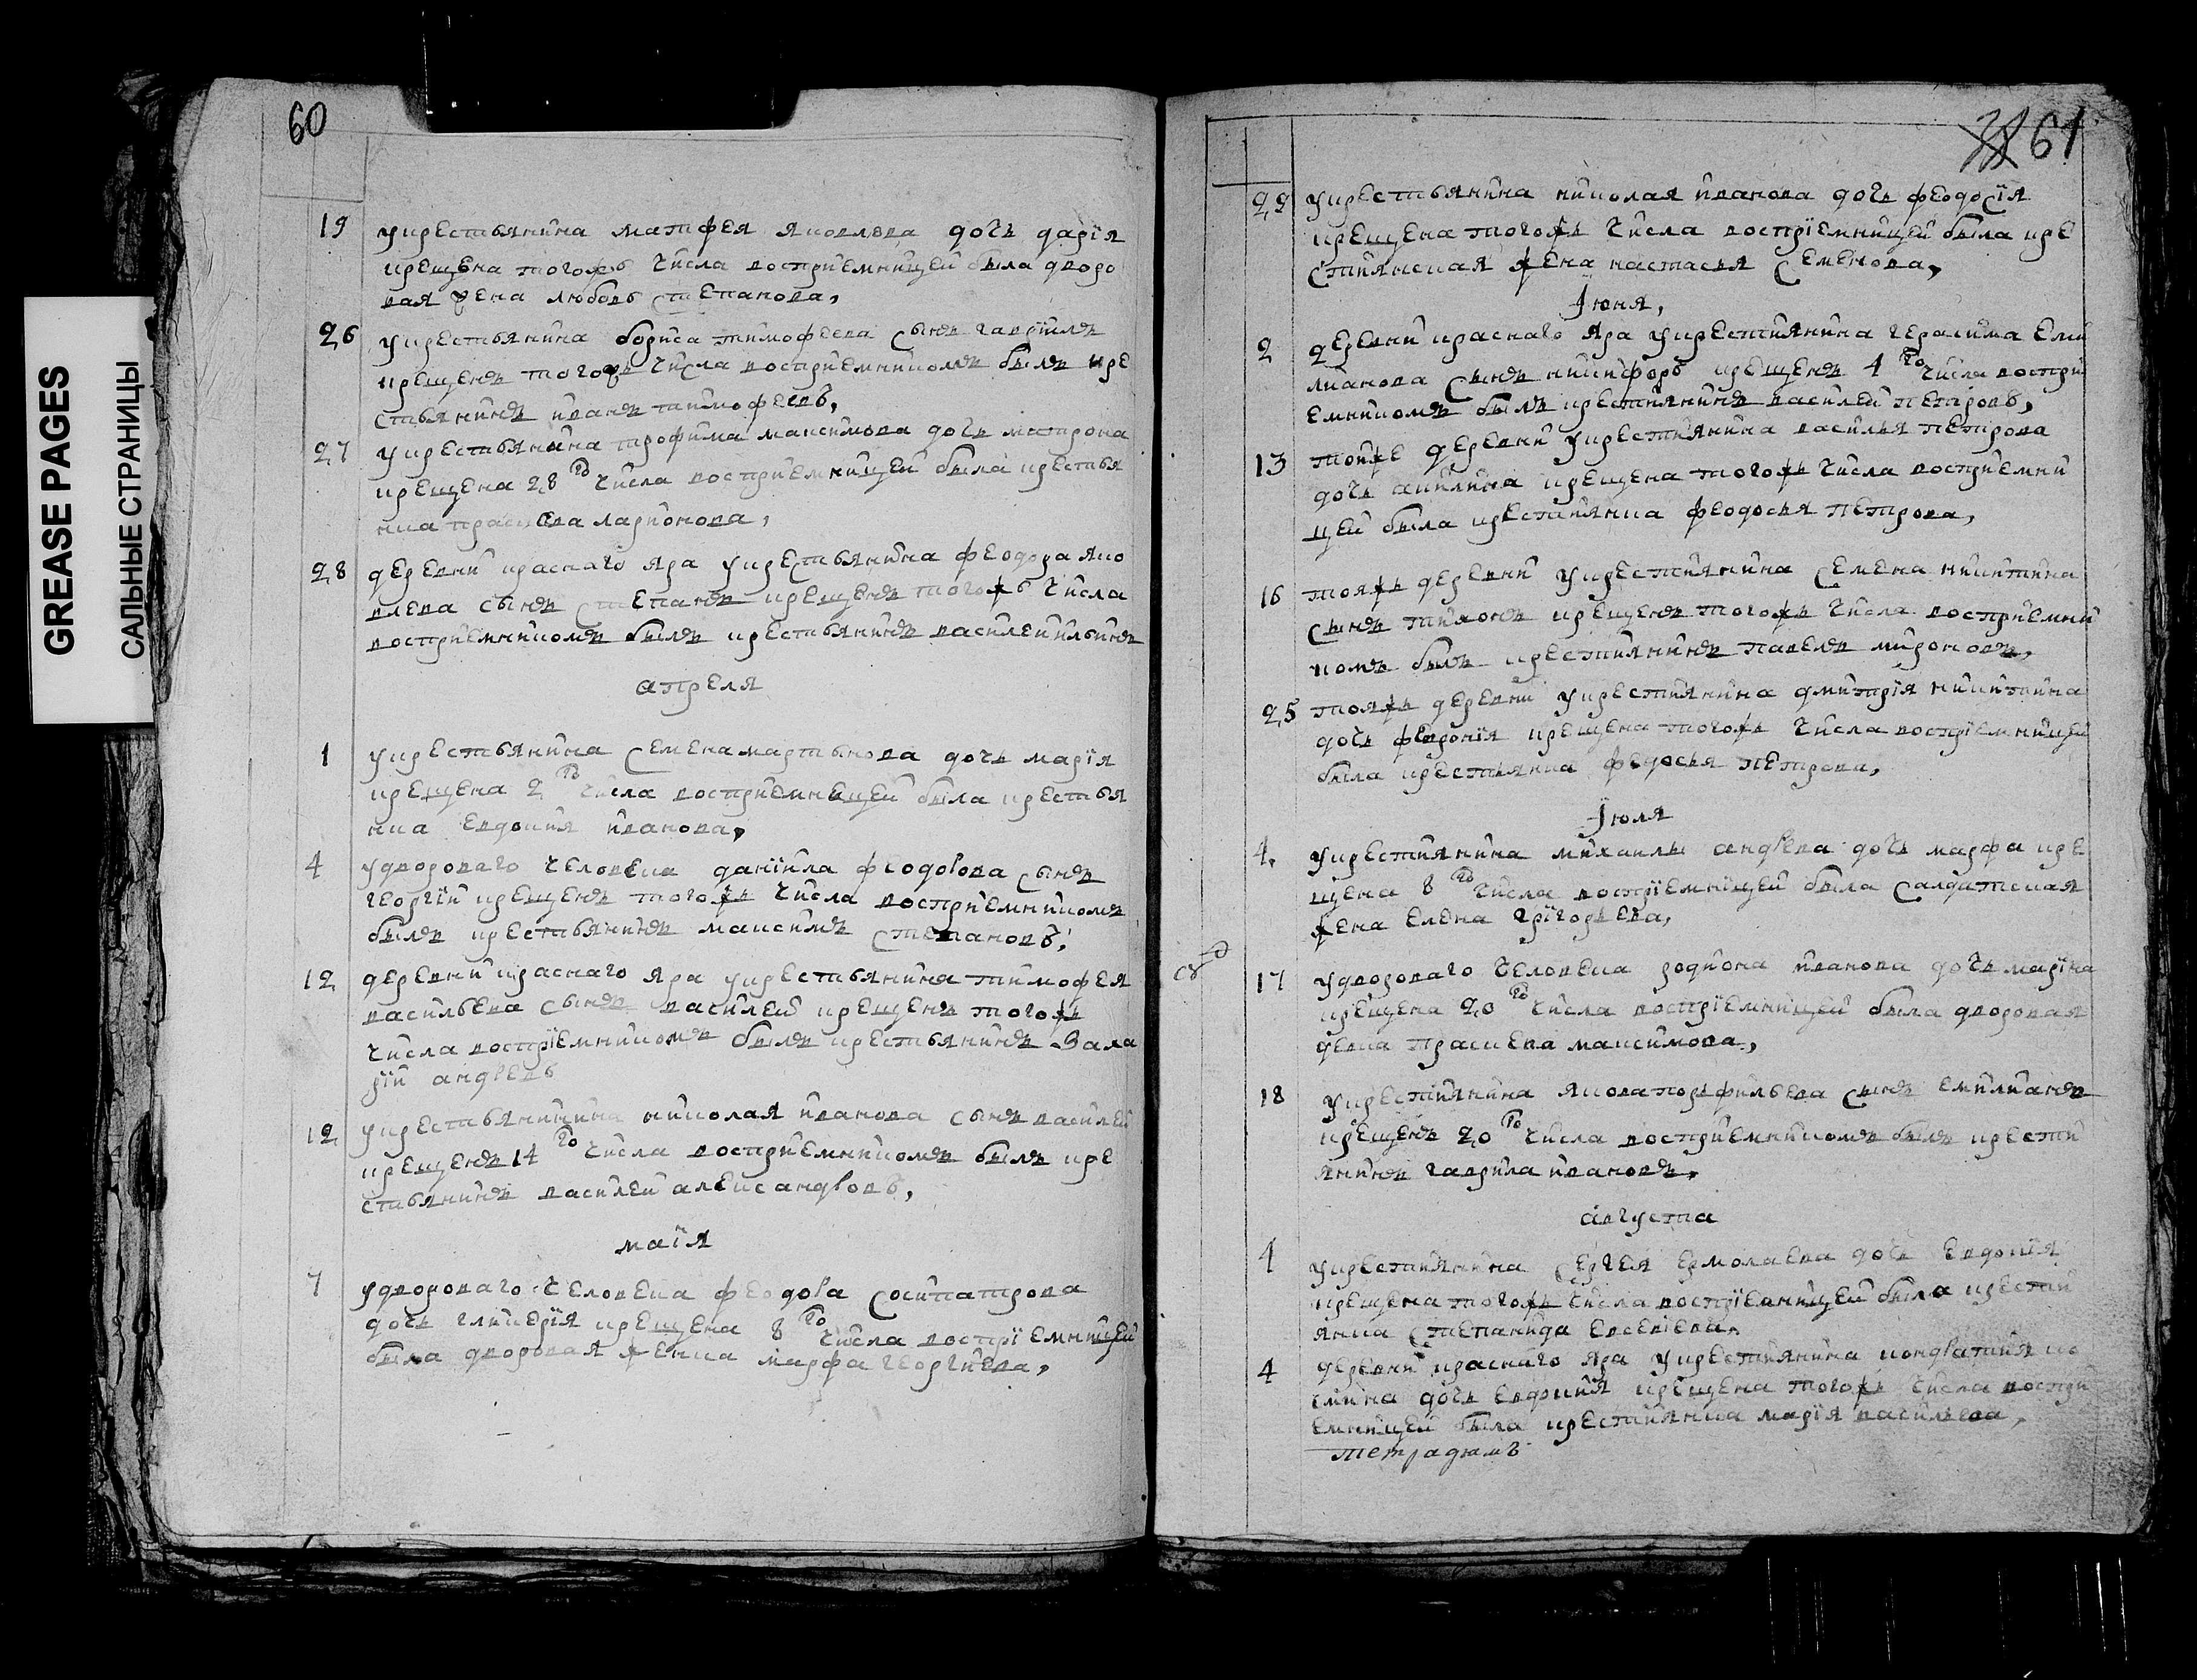 GREASE PAGES
САЛЬНЫЕ СТРАНИЦЫ
60
19 у крестьянина матфея яковлева дочь дарїя
крещена тогожъ числа восприемницей была дворо
вая жена любовь степанова,
26 у крестьянина бориса тимофеева сынъ гаврїилъ
крещенъ тогожъ числа восприемникомъ былъ кре
стьянинъ иванъ тимофеевъ,
27 у крестьянина трофима максимова дочь матрона
крещена 28 го числа восприемницей была крестья
нка праскева ларионова,
28 деревни краснаго яра у крестьянина феодора яко
влева сынъ степанъ крещенъ тогожъ числа
восприемникомъ былъ крестьянинъ василей ильинъ
апреля
1 у крестьянина семена мартынова дочь марїя
крещена 2 го числа восприемницей была крестья
нка евдокия иванова,
4 у двороваго человека данїила феодорова сынъ
георгїй крещенъ тогожъ числа восприемникомъ
былъ крестьянинъ максимъ степановъ,
12 деревни краснаго яра у крестьянина тимофея
васильева сынъ василей крещенъ тогожъ
числа воспрїемникомъ былъ крестьянинъ
рїй андревъ
12 у крестьянинина николая иванова сынъ василей
крещенъ 14 го числа восприемникомъ былъ кре
стьянинъ василей александровъ,
маїя
7 у двороваго человека феодора сосипатрова
дочь гликерїя крещена 8 го числа воспрїемницей
была дворовая женка марфа георгиева,
61
29 у крестьянина николая иванова дочь феодосїя
крещена тогожъ числа воспрїемницей была кре
стиянская жена настасья семенова,
Їюня,
2 деревни краснаго яра у крестиянина герасима еми
лианова сынъ никифоръ крещенъ 4 го числа воспри
емникомъ былъ крестиянинъ василей петровъ,
13 тойже деревни у крестиянина василья петрова
дочь акилина крещена тогожъ числа восприемни
цей была крестиянка феодосья петрова,
16 тояжъ деревни у крестиянина семена никитина
сынъ тихонъ крещенъ тогожъ числа восприемни
комъ былъ крестиянинъ павелъ мироновъ,
25 тояжъ деревни у крестиянина дмитрїя никитина
дочь феврониїя крещена тогожъ числа воспрїемницей
была крестьянка федосья петрова,
Їюля
4. у крестиянина михаилы андрева дочь марфа кре
щена 8 го числа воспрїемницей была салдатская
жена елена грїгорьева,
17 у двороваго человека родиона иванова дочь марїна
крещена 20 го числа воспрїемницей была дворовая
девка праскева максимова,
18 у крестиянина якова порфильева сынъ емилианъ
крещенъ 20 го числа восприемникомъ былъ крести
янинъ гаврила ивановъ,
августа
1 у крестиянина сергея ермолаева дочь евдокїя
крещена тогожъ числа воспрїемницей была крести
янка степанида евсевїева,
4 деревни краснаго яра у крестиянина кондратия ко
дочь крещена тогожъ числа воспри
емницей была крестиянка марїя васильева,
тетрадямъ